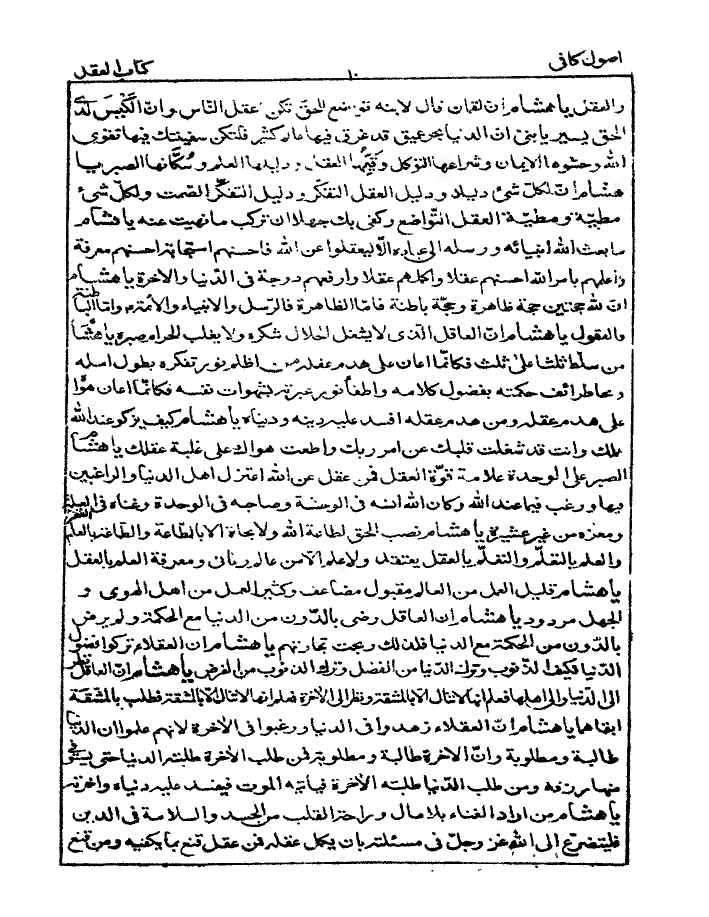 اصول کافی
١٠
کتاب العقل
والعقل یا هشام ان لقمان قال لابنه تواضع للحق تکن اعقل الناس وان الکیس لدی
الحق یسیر یا بنی ان الدنیا بحر عمیق قد غرق فیها عالم کثیر فلتکن سفینتک فیها تقوی
الله وحشوها الایمان وشراعها التوکل وقیمها العقل ودلیلها العلم وسکانها الصبر یا
هشام ان لکل شئ دلیلا ودلیل العقل التفکر ودلیل التفکر الصمت ولکل شئ
مطیة ومطیة العقل التواضع وکفی بک جهلا ان ترکب ما نهیت عنه یا هشام
ما بعث الله انبیائه ورسله الی عباده الا لیعقلوا عن الله فاحسنهم استجابة احسنهم معرفة
واعلمهم بامر الله احسنهم عقلا واکملهم عقلا وارفعهم درجة فی الدنیا والاخرة یا هشام
ان لله حجتین حجة ظاهرة وحجة باطنة فاما الظاهرة فالرسل والانبیاء والائمة واما الباطنة
فالعقول یا هشام ان العاقل الذی لا یشغل الحلال شکره ولا یغلب الحرام صبره یا هشام
من سلط ثلثا علی ثلث فکانما اعان علی هدم عقله من اظلم نور تفکره بطول امله
ومحا طرائف حکمته بفضول کلامه واطفأ نور عبرته بشهوات نفسه فکانما اعان هواه
علی هدم عقله ومن هدم عقله افسد علیه دینه ودنیاه یا هشام کیف یزکو عند الله
عملک وانت قد شغلت قلبک عن امر ربک واطعت هواک علی غلبة عقلک یا هشام
الصبر علی الوحدة علامة قوة العقل فمن عقل عن الله اعتزل اهل الدنیا والراغبین
فیها ورغب فیما عند الله وکان الله انسه فی الوحشة وصاحبه فی الوحدة وغناه فی العیلة
ومعزه من غیر عشیرة یا هشام نصب الحق لطاعة الله ولا نجاة الا بالطاعة والطاعة بالعلم
والعلم بالتعلم والتعلم بالعقل یعتقد ولا علم الا من عالم ربانی ومعرفة العلم بالعقل
یا هشام قلیل العمل من العالم مقبول مضاعف وکثیر العمل من اهل الهوی و
الجهل مردود یا هشام ان العاقل رضی بالدون من الدنیا مع الحکمة ولم یرض
بالدون من الحکمة مع الدنیا فلذلک ربحت تجارتهم یا هشام ان العقلاء ترکوا فضول
الدنیا فکیف الذنوب وترک الدنیا من الفضل وترک الذنوب من الفرض یا هشام ان العاقل نظر
الی الدنیا والی اهلها فعلم انها لا تنال الا بالمشقة ونظر الی الاخرة فعلم انها لا تنال الا بالمشقة فطلب بالمشقة
ابقاهما یا هشام ان العقلاء زهدوا فی الدنیا ورغبوا فی الاخرة لانهم علموا ان الدنیا
طالبة ومطلوبة وان الاخرة طالبة ومطلوبة فمن طلب الاخرة طلبته الدنیا حتی یستوفی
منها رزقه ومن طلب الدنیا طلبته الاخرة فیأتیه الموت فیفسد علیه دنیاه واخرته
یا هشام من اراد الغناء بلا مال وراحة القلب من الحسد والسلامة فی الدین
فلیتضرع الی الله عز وجل فی مسئلته بان یکمل عقله فمن عقل قنع بما یکفیه ومن قنع